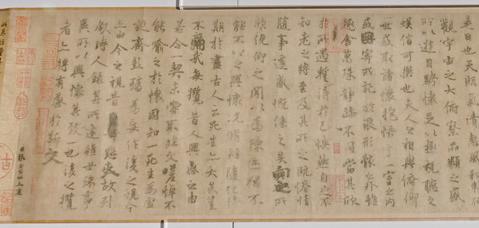 是日也天朗氣清惠風和
觀宇宙之大俯察品類之盛
所以遊目騁懷足以極視聽之
娛信可樂也夫人之相與俯仰
一世或取諸懷抱悟言一室之內
或因寄所託放浪形骸之外雖
趣舍萬殊靜躁不同當其欣
於所遇暫得於己怏然自足不
知老之將至及其所之既惓情
隨事遷感慨係之矣向之所
欣俛仰之間以為陳迹猶不
能不以之興懷況脩短隨化終
期於盡古人云死生亦大矣豈
不痛哉每攬昔人興感之由
若合一契未嘗不臨文嗟悼不
能喻之於懷固知一死生為虛
誕齊彭殤為妄作後之視今
亦由今之視昔悲夫故列
敘時人錄其所述雖世殊事
異所以興懷其致一也後之攬
者亦將有感於斯文